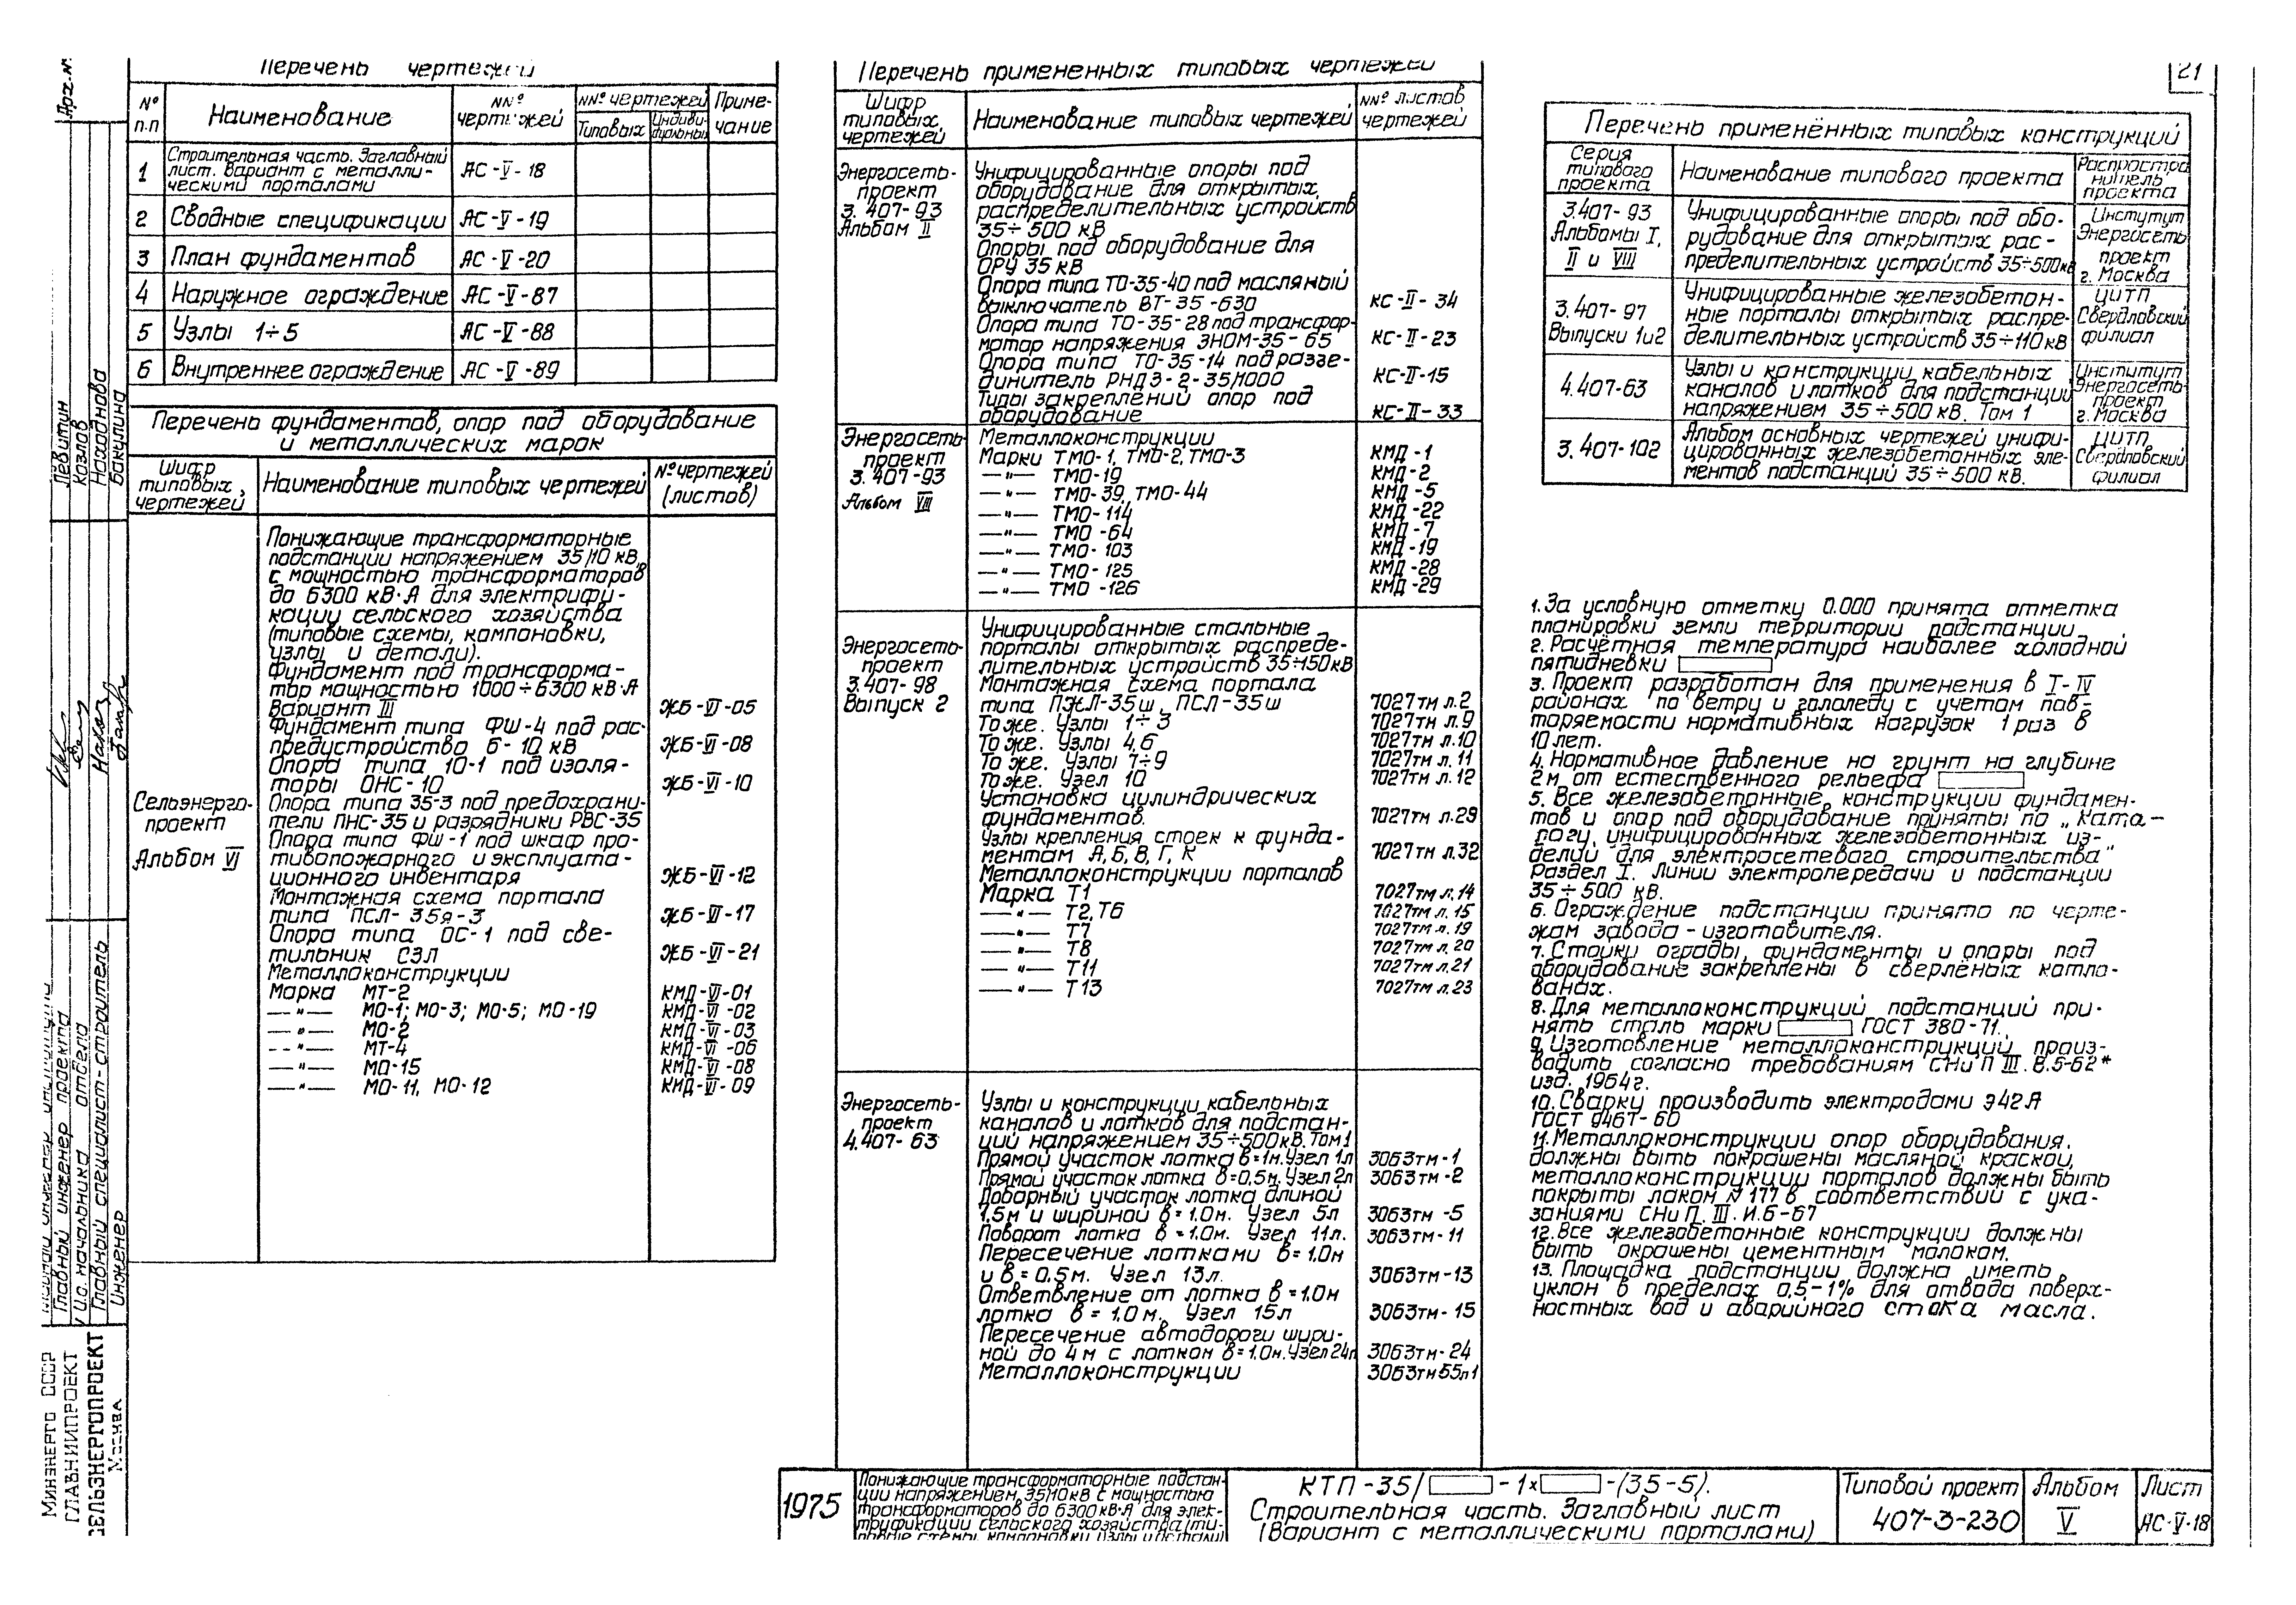 Перечень чертежей
№ п.п
Наименование
NN° чертежей
NN° чертежей
Типовых
Индиви-
дуальных
Приме-
чание
1
Строительная часть. Заглавный
лист. Вариант с металли-
ческими порталами
АС-V-18
2 Сводные спецификации АС-V-19
3 План фундаментов АС-V-20
4 Наружное ограждение АС-V-87
5 Узлы 1÷5 АС-V-88
6 Внутреннее ограждение АС-V-89
Перечень фундаментов, опор под оборудование
и металлических марок
Шифр
типовых
чертежей
Наименование типовых чертежей
N° чертежей
(листов)
Сельэнерго-
проект
Альбом VI
Понижающие трансформаторные
подстанции напряжением 35/10 кВ,
с мощностью трансформаторов
до 6300 кВ·А для электрифи-
кации сельского хозяйства
(типовые схемы, компоновки,
узлы и детали).
Фундамент под трансформа-
тор мощностью 1000÷6300 кВ·А
Вариант III ЖБ-VI-05
Фундамент типа ФШ-4 под рас-
предустройство 6-10 кВ ЖБ-VI-08
Опора типа 10-1 под изоля-
торы ОНС-10 ЖБ-VI-10
Опора типа 35-3 под предохрани-
тели ПНС-35 и разрядники РВС-35
Опора типа ФШ-1 под шкаф про-
тивопожарного и эксплуата-
ционного инвентаря ЖБ-VI-12
Монтажная схема портала
типа ПСЛ-35я-3 ЖБ-VI-17
Опора типа ОС-1 под све-
тильник СЗЛ ЖБ-VI-21
Металлоконструкции
Марка МТ-2 КМД-VI-01
—"— МО-1; МО-3; МО-5; МО-19 КМД-VI-02
—"— МО-2 КМД-VI-03
—"— МТ-4 КМД-VI-06
—"— МО-15 КМД-VI-08
—"— МО-11, МО-12 КМД-VI-09
Перечень примененных типовых чертежей
Шифр
типовых
чертежей
Наименование типовых чертежей
NN° листов
чертежей
Энергосеть-
проект
3.407-93
Альбом II
Унифицированные опоры под
оборудование для открытых
распределительных устройств
35÷500 кВ
Опоры под оборудование для
ОРУ 35 кВ
Опора типа ТО-35-40 под масляный
выключатель ВТ-35-630 КС-II-34
Опора типа ТО-35-28 под трансфор-
матор напряжения ЗНОМ-35-65 КС-II-23
Опора типа ТО-35-14 под разъе-
динитель РНДЗ-2-35/1000 КС-II-15
Типы закреплений опор под
оборудование КС-II-33
Энергосеть-
проект
3.407-93
Альбом VIII
Металлоконструкции
Марки ТМО-1, ТМО-2, ТМО-3 КМД-1
—"— ТМО-19 КМД-2
—"— ТМО-39, ТМО-44 КМД-5
—"— ТМО-114 КМД-22
—"— ТМО-64 КМД-7
—"— ТМО-103 КМД-19
—"— ТМО-125 КМД-28
—"— ТМО-126 КМД-29
Энергосеть-
проект
3.407-98
Выпуск 2
Унифицированные стальные
порталы открытых распреде-
лительных устройств 35÷150 кВ
Монтажная схема портала
типа ПЖЛ-35ш, ПСЛ-35ш 7027тм л.2
То же. Узлы 1÷3 7027тм л.9
То же. Узлы 4,6 7027тм л.10
То же. Узлы 7÷9 7027тм л.11
То же. Узел 10 7027тм л.12
Установка цилиндрических
фундаментов. 7027тм л.29
Узлы крепления стоек к фунда-
ментам А, Б, В, Г, К 7027тм л.32
Металлоконструкции порталов
Марка Т1 7027тм л.14
—"— Т2, Т6 7027тм л.15
—"— Т7 7027тм л.19
—"— Т8 7027тм л.20
—"— Т11 7027тм л.21
—"— Т13 7027тм л.23
Энергосеть-
проект
4.407-63
Узлы и конструкции кабельных
каналов и лотков для подстан-
ций напряжением 35÷500 кВ. Том 1
Прямой участок лотка в=1м. Узел 1л 3063тм-1
Прямой участок лотка в=0,5м. Узел 2л 3063тм-2
Доборный участок лотка длиной
1,5м и шириной в=1.0м. Узел 5л 3063тм-5
Поворот лотка в=1.0м. Узел 11л. 3063тм-11
Пересечение лотками в=1.0м
и в=0.5м. Узел 13л. 3063тм-13
Ответвление от лотка в=1.0м
лотка в=1.0м. Узел 15л 3063тм-15
Пересечение автодороги шири-
ной до 4м с лотком в=1.0м. Узел 24л 3063тм-24
Металлоконструкции 3063тм55л1
21
Перечень применённых типовых конструкций
Серия
типового
проекта
Наименование типового проекта
Распростра
нитель
проекта
3.407-93
Альбомы I,
II и VIII
Унифицированные опоры под обо-
рудование для открытых рас-
пределительных устройств 35÷500кВ
Институт
Энергосеть
проект
г. Москва
3.407-97
Выпуски 1и2
Унифицированные железобетон-
ные порталы открытых распре-
делительных устройств 35÷110 кВ
ЦИТП
Свердловский
филиал
4.407-63
Узлы и конструкции кабельных
каналов и лотков для подстанций
напряжением 35÷500 кВ. Том 1
Институт
Энергосеть-
проект
г. Москва
3.407-102
Альбом основных чертежей унифи-
цированных железобетонных эле-
ментов подстанций 35÷500 кВ.
ЦИТП
Свердловский
филиал
1. За условную отметку 0.000 принята отметка
планировки земли территории подстанции
2. Расчётная температура наиболее холодной
пятидневки
3. Проект разработан для применения в I-IV
районах по ветру и гололеду с учетом пов-
торяемости нормативных нагрузок 1 раз в
10 лет.
4. Нормативное давление на грунт на глубине
2м от естественного рельефа
5. Все железобетонные конструкции фундамен-
тов и опор под оборудование приняты по „Ката-
логу унифицированных железобетонных из-
делий для электросетевого строительства"
Раздел I. Линии электропередачи и подстанции
35÷500 кВ.
6. Ограждение подстанции принято по черте-
жам завода-изготовителя.
7. Стойки ограды, фундаменты и опоры под
оборудование закреплены в сверлёных котло-
ванах.
8. Для металлоконструкций подстанций при-
нять сталь марки ГОСТ 380-71.
9. Изготовление металлоконструкций произ-
водить согласно требованиям СНиП III.В.5-62*
изд. 1964г.
10. Сварку производить электродами Э42А
ГОСТ 9467-60
11. Металлоконструкции опор оборудования.
должны быть покрашены масляной краской,
металлоконструкции порталов должны быть
покрыты лаком N 177 в соответствий с ука-
заниями СНиП. III. И.6-67
12. Все железобетонные конструкции должны
быть окрашены цементным молоком.
13. Площадка подстанции должна иметь
уклон в пределах 0,5-1% для отвода поверх-
ностных вод и аварийного стока масла.
1975
Понижающие трансформаторные подстан-
ции напряжением 35/10кВ с мощностью
трансформаторов до 6300кВ·А для элек-
трификации сельского хозяйства (ти-
повые схемы, компоновки узлы и детали)
КТП-35/ -1× -(35-5).
Строительная часть. Заглавный лист
(Вариант с металлическими порталами)
Типовой проект
407-3-230
Альбом
V
Лист
АС-V-18
Арх.N°
Левитин
Козлов
Находнова
Бакулина
Главный инженер проекта
И.о. начальника отдела
Главный специалист-строитель
Инженер
Минэнерго СССР
ГЛАВНИИПРОЕКТ
СЕЛЬЭНЕРГОПРОЕКТ
Москва